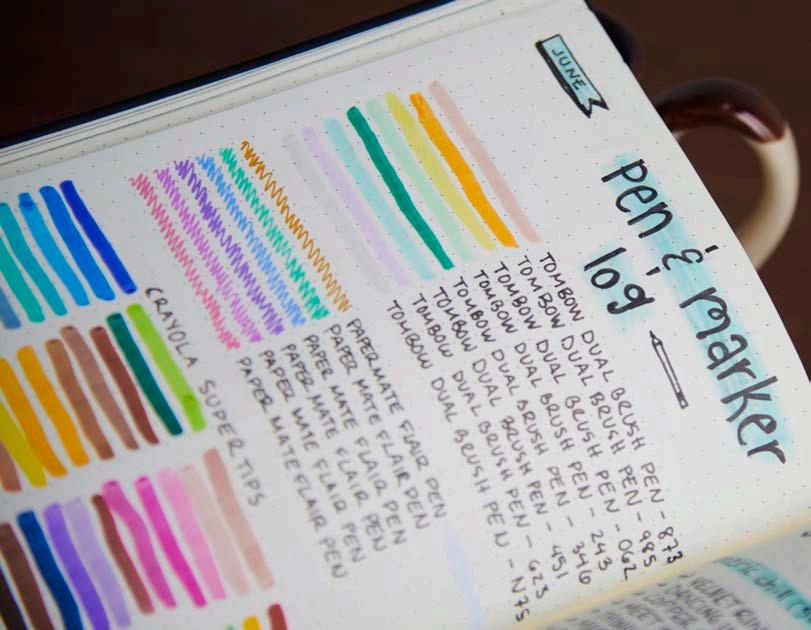 JUNE
pen & marker
log
TOMBOW DUAL BRUSH PEN - 873
TOMBOW DUAL BRUSH PEN - 985
TOMBOW DUAL BRUSH PEN - 062
TOMBOW DUAL BRUSH PEN - 243
TOMBOW DUAL BRUSH PEN - 346
TOMBOW DUAL BRUSH PEN - 451
TOMBOW DUAL BRUSH PEN - 623
TOMBOW DUAL BRUSH PEN - N75
PAPERMATE FLAIR PEN
PAPER MATE FLAIR PEN
PAPER MATE FLAIR PEN
PAPER MATE FLAIR PEN
PAPER MATE FLAIR PEN
PAPER MATE FLAIR PEN
CRAYOLA SUPERTIPS